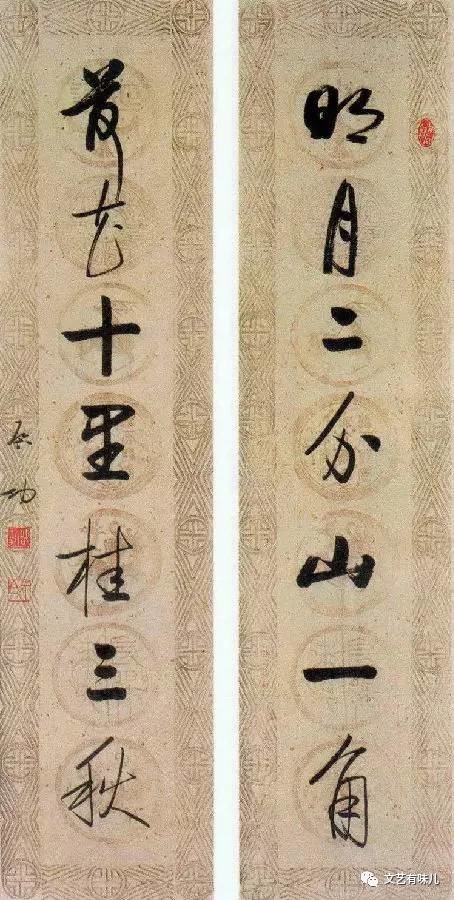 明月二分山一角
荷花十里桂三秋
启功
文艺有味儿